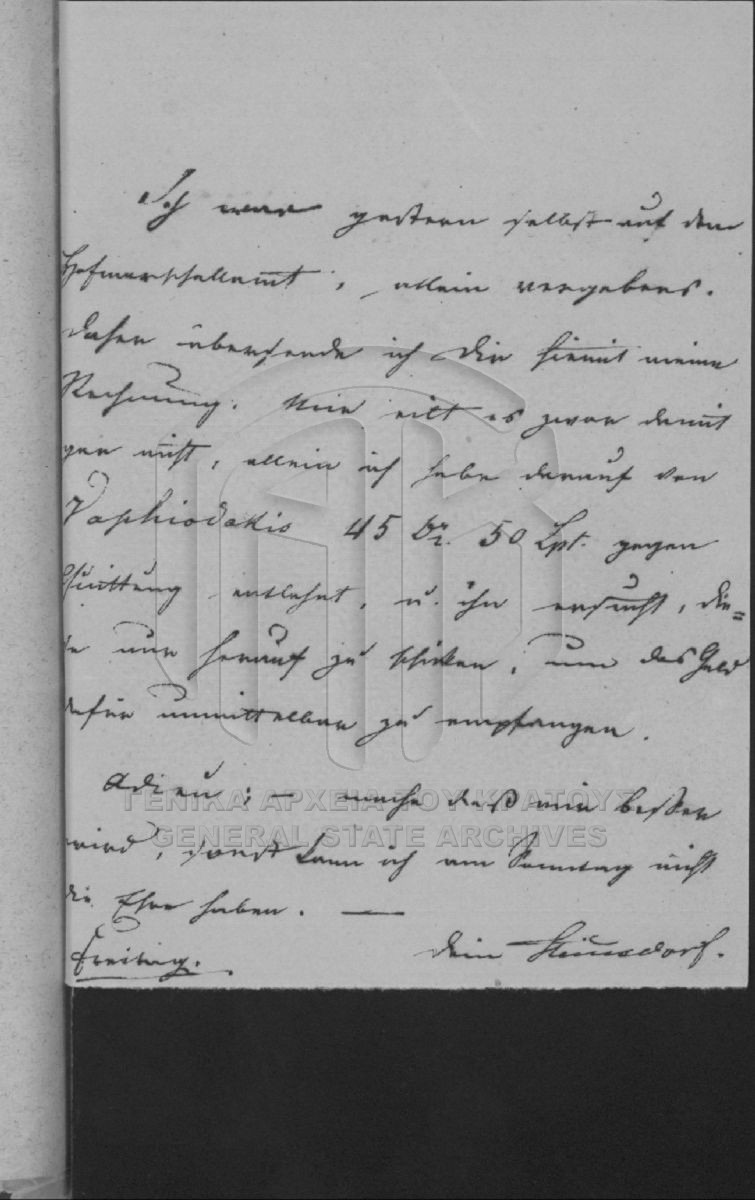 Ich war gestern selbst auf dem
Hofmarschallamt, allein vergebens.
Daher übersende ich Dir hiemit meine
Rechnung. Mir eilt es zwar damit
gar nicht, allein ich habe darauf von
Vaphiodakis 45 Dr. 50 Lpt. gegen
Quittung entlehnt, u. ihn ersucht, die=
se nur herauf zu schicken, um das Geld
dafür unmittelbar zu empfangen.
ΓΕΝΙΚΑ ΑΡΧΕΙΑ ΤΟΥ ΚΡΑΤΟΥΣ
GENERAL STATE ARCHIVES
Adieu; — mache daß mir besser
wird, sonst kann ich am Sonntag nicht
die Ehre haben. —
Freitag.
Dein